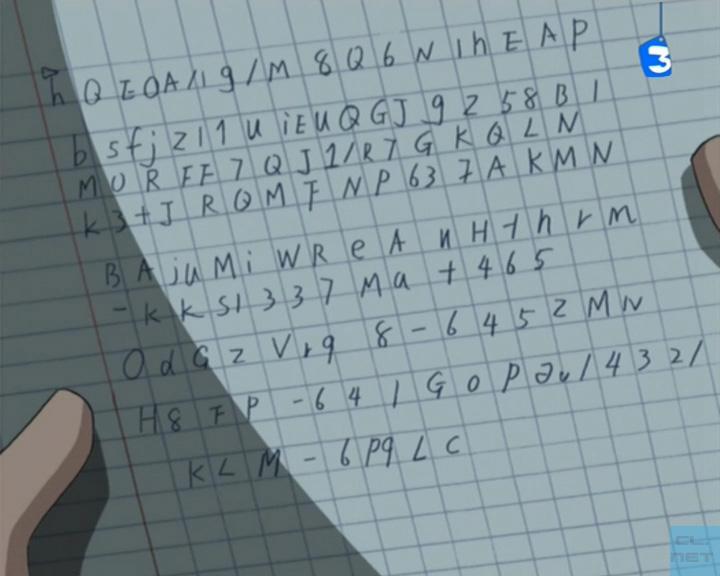 3
h Q E O A / 1 9 / M 8 Q 6 N 1 h E A P
b s f j z 1 1 u i E U Q G J 9 2 5 8 B 1
M O R F F 7 Q J 1 / R 7 G K Q L N
k 3 + J R Q M F N P 6 3 7 A K M N
B A j u M i W R e A n H t h r m
- K K S 1 3 3 7 M a + 4 6 5
O d G z V r 9 8 - 6 4 5 2 M N
H 8 F P - 6 4 1 G O P a u / 4 3 2 /
K L M - 6 P 9 L C
CL.
NET